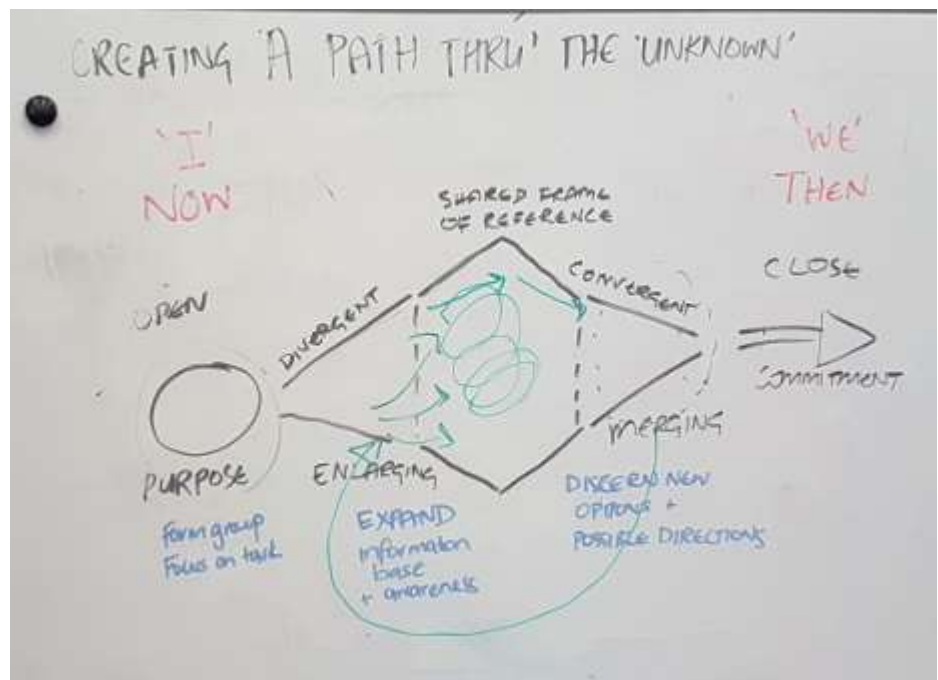 CREATING 'A PATH THRU' THE 'UNKNOWN'
'I'
NOW
'WE'
THEN
SHARED FRAME
OF REFERENCE
OPEN
DIVERGENT
CONVERGENT
CLOSE
COMMITMENT
PURPOSE
ENLARGING
MERGING
Form group
Focus on task
EXPAND
information
base
+ awareness
DISCERN NEW
OPTIONS +
POSSIBLE DIRECTIONS